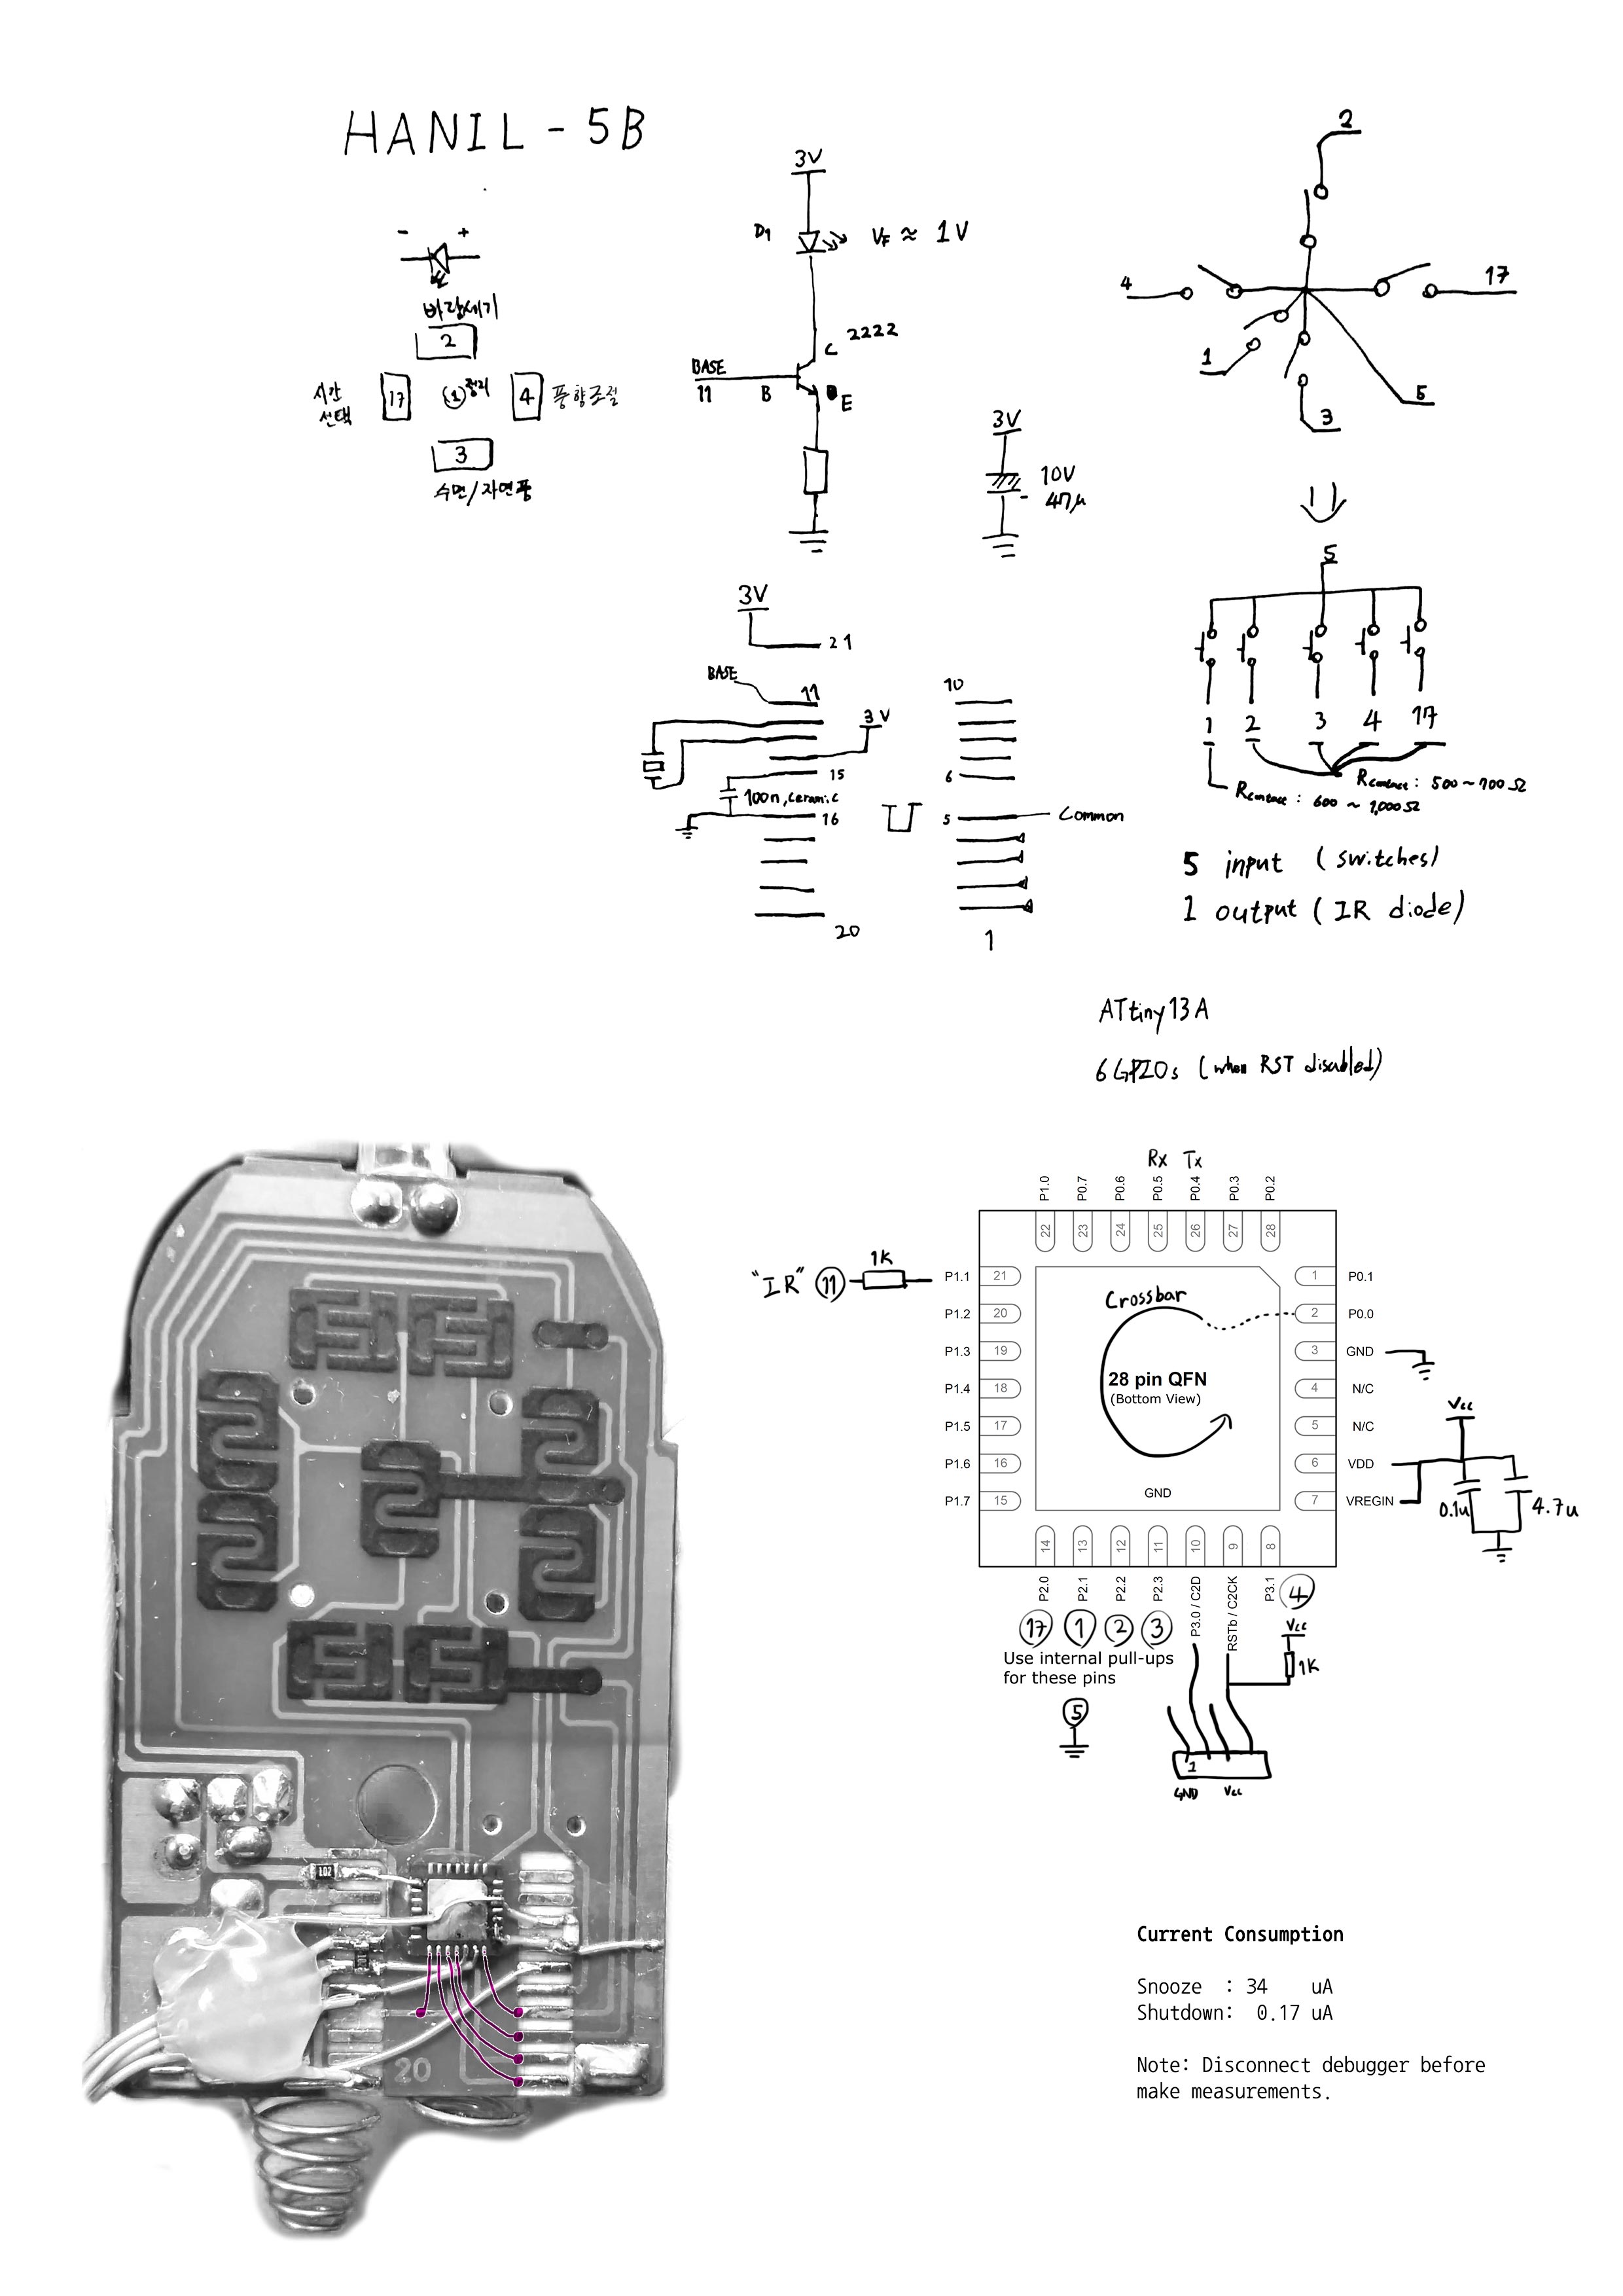 HANIL - 5B
- +
바람세기
2
시간
선택
17
1
정지
4
풍향조절
3
수면/자연풍
3V
D1
VF ≈ 1V
C 2222
BASE
11
B
E
3V
10V
47µ
-
2
4
17
1
5
3
5
1 2 3 4 17
Rcontact : 600 ~ 1,000Ω
Rcontact : 500 ~ 700Ω
5 input (switches)
1 output (IR diode)
3V
21
BASE
11
3V
15
100n, ceramic
16
20
10
6
5
Common
1
ATtiny13A
6 GPIOs (when RST disabled)
Rx Tx
P1.0 P0.7 P0.6 P0.5 P0.4 P0.3 P0.2
22 23 24 25 26 27 28
"IR" 11
1K
P1.1 21
P1.2 20
P1.3 19
P1.4 18
P1.5 17
P1.6 16
P1.7 15
Crossbar
28 pin QFN
(Bottom View)
GND
1 P0.1
2 P0.0
3 GND
4 N/C
5 N/C
6 VDD
7 VREGIN
Vcc
0.1u
4.7u
14 13 12 11 10 9 8
P2.0 P2.1 P2.2 P2.3 P3.0 / C2D RSTb / C2CK P3.1
17 1 2 3 4
Use internal pull-ups
for these pins
5
Vcc
1K
1
GND Vcc
102
20
Current Consumption
Snooze : 34 uA
Shutdown: 0.17 uA
Note: Disconnect debugger before
make measurements.